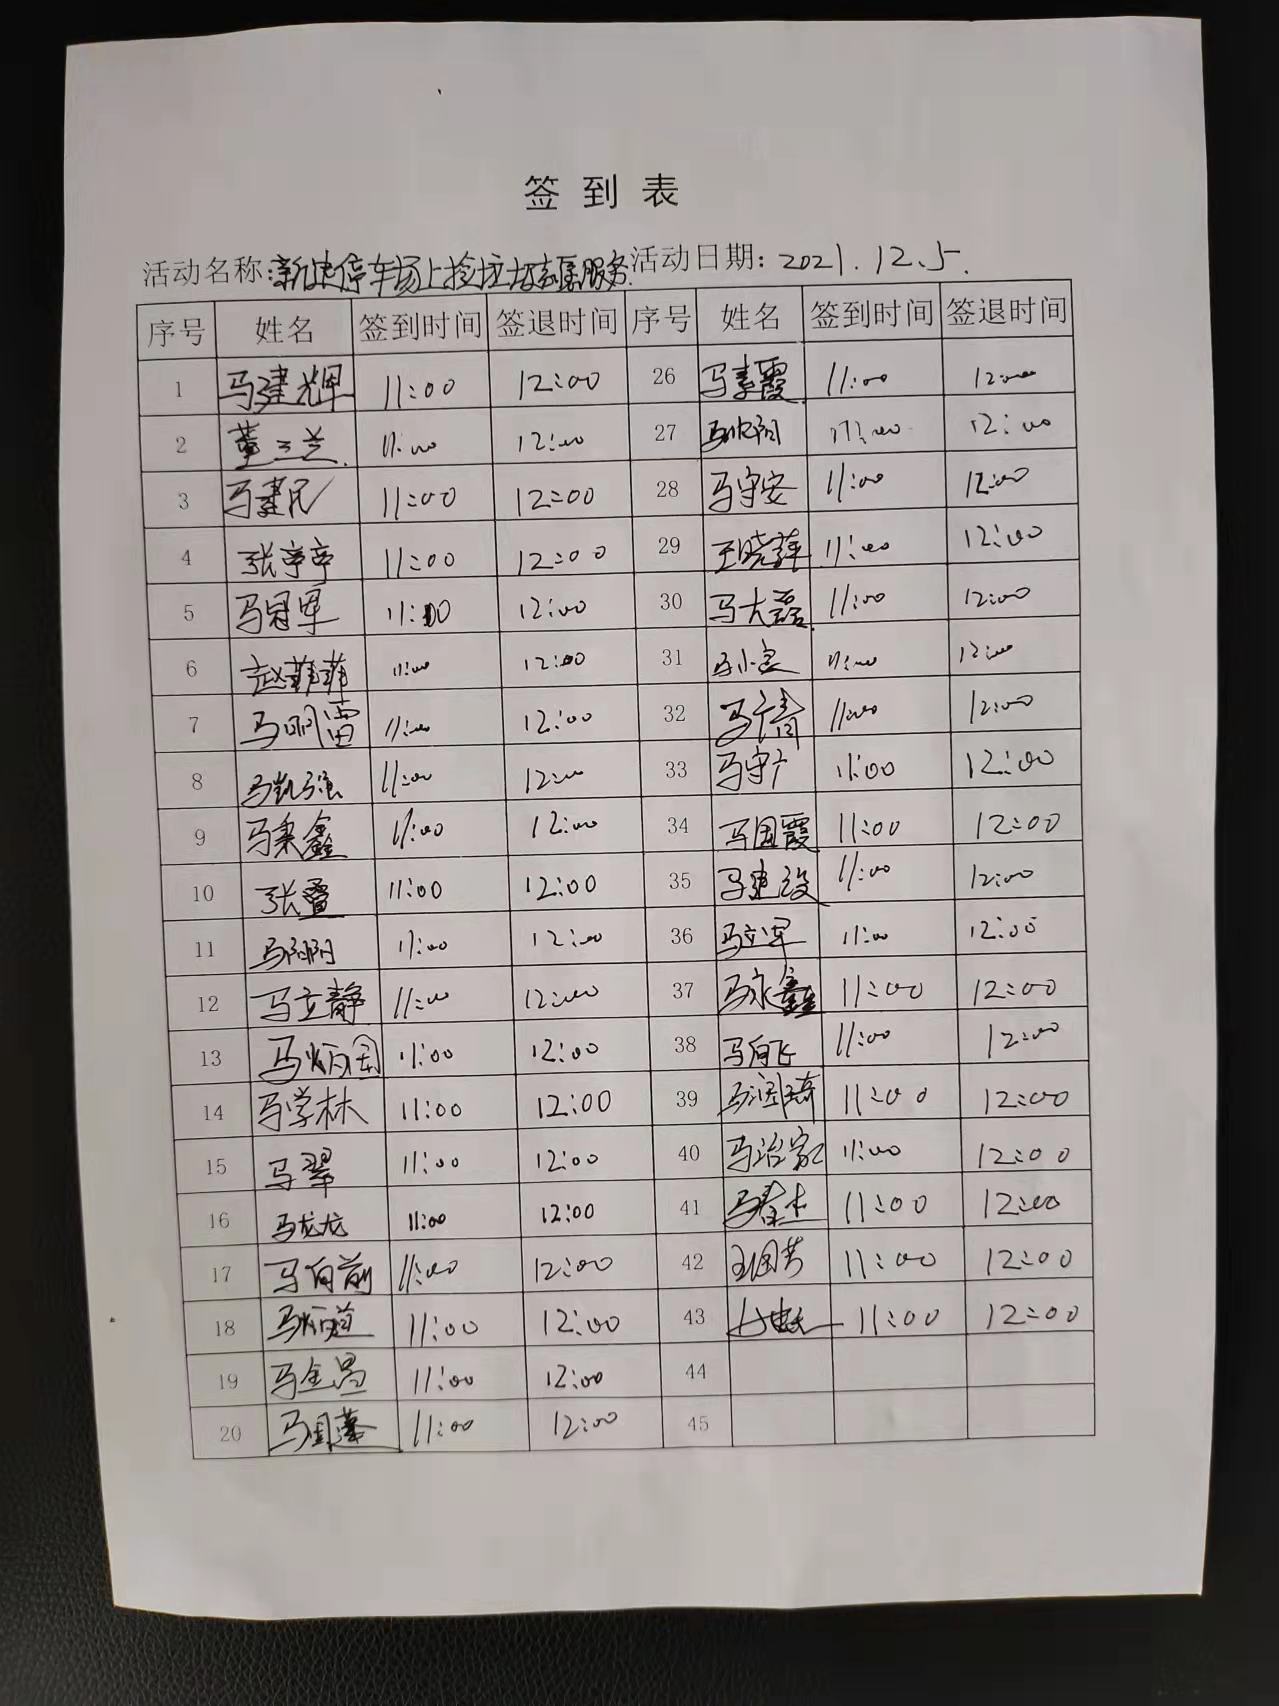 签到表
活动名称:新建停车场上捡垃圾志愿服务 活动日期: 2021.12.5.
序号 姓名 签到时间 签退时间 序号 姓名 签到时间 签退时间
1 马建辉 11:00 12:00 26 马素霞 11:00 12:00
2 董三兰 11:00 12:00 27 11:00 12:00
3 马建民 11:00 12:00 28 马守安 11:00 12:00
4 张亭亭 11:00 12:00 29 王晓萍 11:00 12:00
5 马冠军 11:00 12:00 30 马大磊 11:00 12:00
6 赵菲菲 11:00 12:00 31 11:00 12:00
7 马明雷 11:00 12:00 32 11:00 12:00
8 马凯强 11:00 12:00 33 马守广 11:00 12:00
9 马秉鑫 11:00 12:00 34 马国霞 11:00 12:00
10 张叠 11:00 12:00 35 马建设 11:00 12:00
11 马阳阳 11:00 12:00 36 马立军 11:00 12:00
12 马立静 11:00 12:00 37 马永鑫 11:00 12:00
13 马炳国 11:00 12:00 38 马向飞 11:00 12:00
14 马学林 11:00 12:00 39 马润琦 11:00 12:00
15 马翠 11:00 12:00 40 马治家 11:00 12:00
16 马龙龙 11:00 12:00 41 马春杰 11:00 12:00
17 马向前 11:00 12:00 42 王国芳 11:00 12:00
18 11:00 12:00 43 11:00 12:00
19 马金昌 11:00 12:00 44
20 11:00 12:00 45